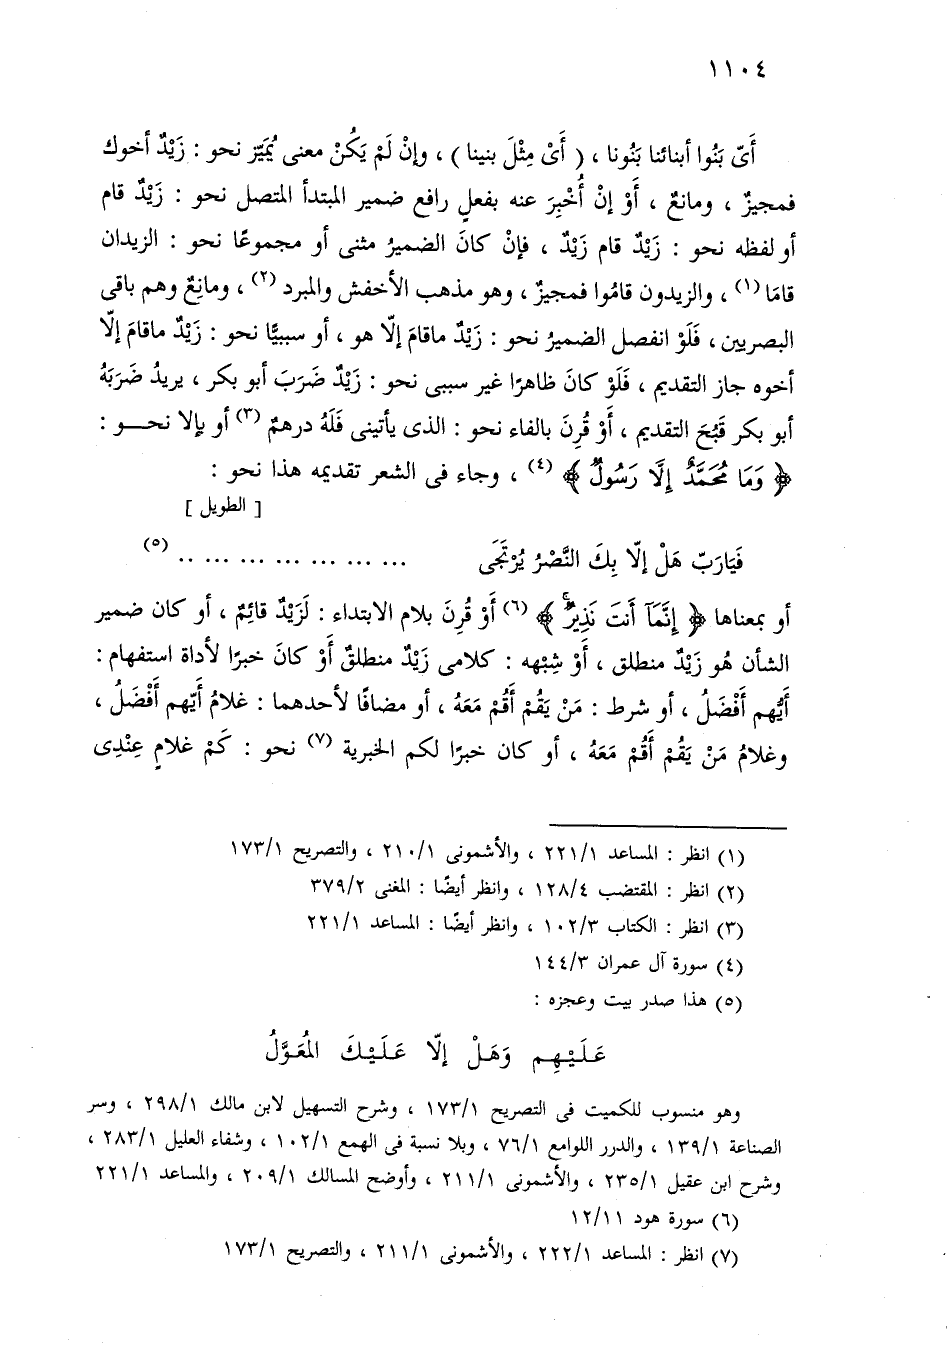 ١١٠٤
أَىّ بَنُوا أبنائنا بَنُونا ، ( أَىْ مِثْلَ بنينا ) ، وإنْ لَمْ يَكُنْ معنى يُمَيَّز نحو : زَيْدٌ أخوك
فمجيزٌ ، ومانعٌ ، أَوْ إنْ أُخْبِرَ عنه بفعلٍ رافع ضمير المبتدأ المتصل نحو : زَيْدٌ قام
أو لفظه نحو : زَيْدٌ قام زَيْدٌ ، فإنْ كانَ الضميرُ مثنى أو مجموعًا نحو : الزيدان
قامَا (١) ، والزيدون قامُوا فمجيزٌ ، وهو مذهب الأخفش والمبرد (٢) ، ومانِعٌ وهم باقى
البصريين ، فَلَوْ انفصل الضميرُ نحو : زَيْدٌ ماقامَ إلّا هو ، أو سببيًّا نحو : زَيْدٌ ماقامَ إلّا
أخوه جاز التقديم ، فَلَوْ كانَ ظاهرًا غير سببى نحو : زَيْدٌ ضَرَبَ أبو بكر ، يريدُ ضَرَبَهُ
أبو بكر قَبُحَ التقديم ، أَوْ قُرِنَ بالفاء نحو : الذى يأتينى فَلَهُ درهمٌ (٣) أو بإلا نحــو :
﴿ وَمَا مُحَمَّدٌ إِلَّا رَسُولٌ ﴾ (٤) ، وجاء فى الشعر تقديمه هذا نحو :
[ الطويل ]
فَيَارَبّ هَلْ إلّا بِكَ النَّصْرُ يُرْتَجَى ... ... ... ... ... ... ... .. (٥)
أو بمعناها ﴿ إِنَّمَآ أَنتَ نَذِيرٌۚ ﴾ (٦) أَوْ قُرِنَ بلام الابتداء : لَزَيْدٌ قائِمٌ ، أو كان ضمير
الشأن هُو زَيْدٌ منطلق ، أَوْ شِبْهه : كلامى زَيْدٌ منطلقٌ أَوْ كانَ خبرًا لأداة استفهام :
أَيُّهم أَفْضَلُ ، أو شرط : مَنْ يَقُمْ أَقُمْ مَعَهُ ، أو مضافًا لأحدهما : غلامُ أيّهم أَفْضَلُ ،
وغلامُ مَنْ يَقُمْ أَقُمْ مَعَهُ ، أو كان خبرًا لكم الخبرية (٧) نحو : كَمْ غلامٍ عِنْدِى
(١) انظر : المساعد ٢٢١/١ ، والأشمونى ٢١٠/١ ، والتصريح ١٧٣/١
(٢) انظر : المقتضب ١٢٨/٤ ، وانظر أيضًا : المغنى ٣٧٩/٢
(٣) انظر : الكتاب ١٠٢/٣ ، وانظر أيضًا : المساعد ٢٢١/١
(٤) سورة آل عمران ١٤٤/٣
(٥) هذا صدر بيت وعجزه :
عَلَيْهِم وَهَلْ إلّا عَلَيْكَ المُعَوَّلُ
وهو منسوب للكميت فى التصريح ١٧٣/١ ، وشرح التسهيل لابن مالك ٢٩٨/١ ، وسر
الصناعة ١٣٩/١ ، والدرر اللوامع ٧٦/١ ، وبلا نسبة فى الهمع ١٠٢/١ ، وشفاء العليل ٢٨٣/١ ،
وشرح ابن عقيل ٢٣٥/١ ، والأشمونى ٢١١/١ ، وأوضح المسالك ٢٠٩/١ ، والمساعد ٢٢١/١
(٦) سورة هود ١٢/١١
(٧) انظر : المساعد ٢٢٢/١ ، والأشمونى ٢١١/١ ، والتصريح ١٧٣/١